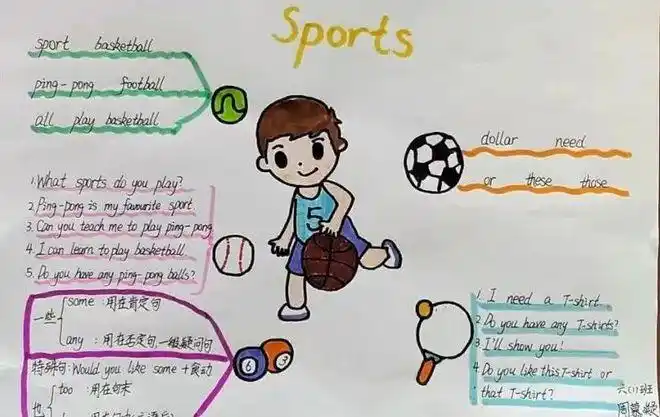 Sports
sport basketball
ping-pong football
all play basketball
dollar need
or these those
1. What sports do you play?
2. Ping-pong is my favourite sport
3. Can you teach me to play ping-pong
4. I can learn to play basketball
5. Do you have any ping-pong balls?
5
一些
some :用在肯定句
any :用在否定句,一般疑问句
特殊句:Would you like some +
也
too :用在句末
6
3
1. I need a T-shirt
2. Do you have any T-shirts?
3. I'll show you!
4. Do you like this T-shirt or
that T-shirt?
六(1)班